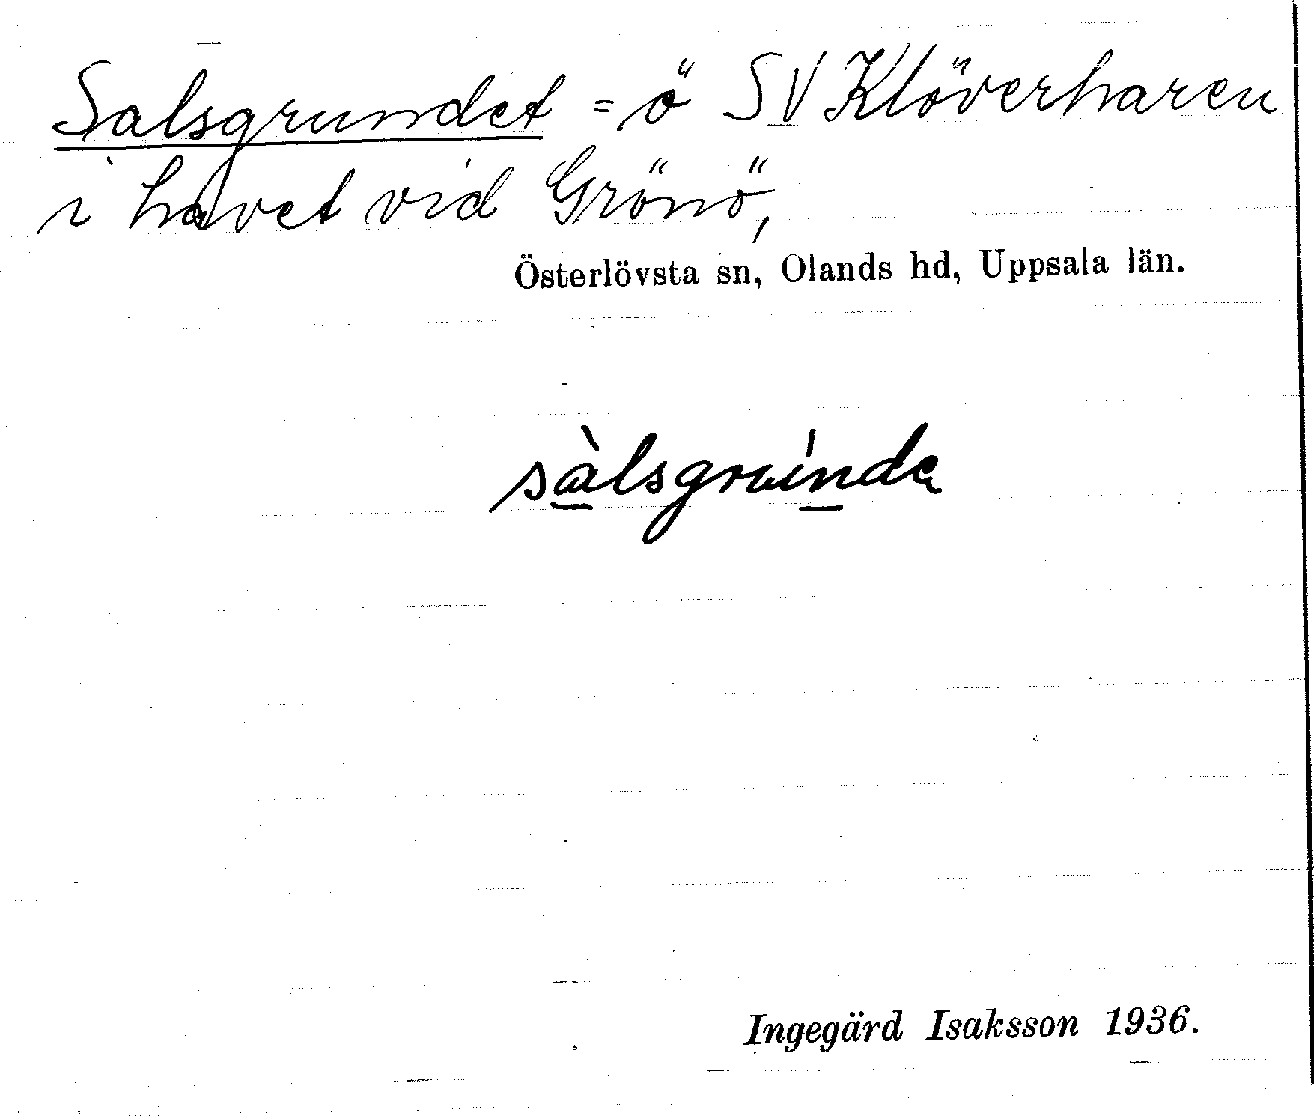 Salsgrundet = ö SV Klöverharen
i havet vid Grönö,
Österlövsta sn, Olands hd, Uppsala län.
sàlsgruńda
Ingegärd Isaksson 1936.